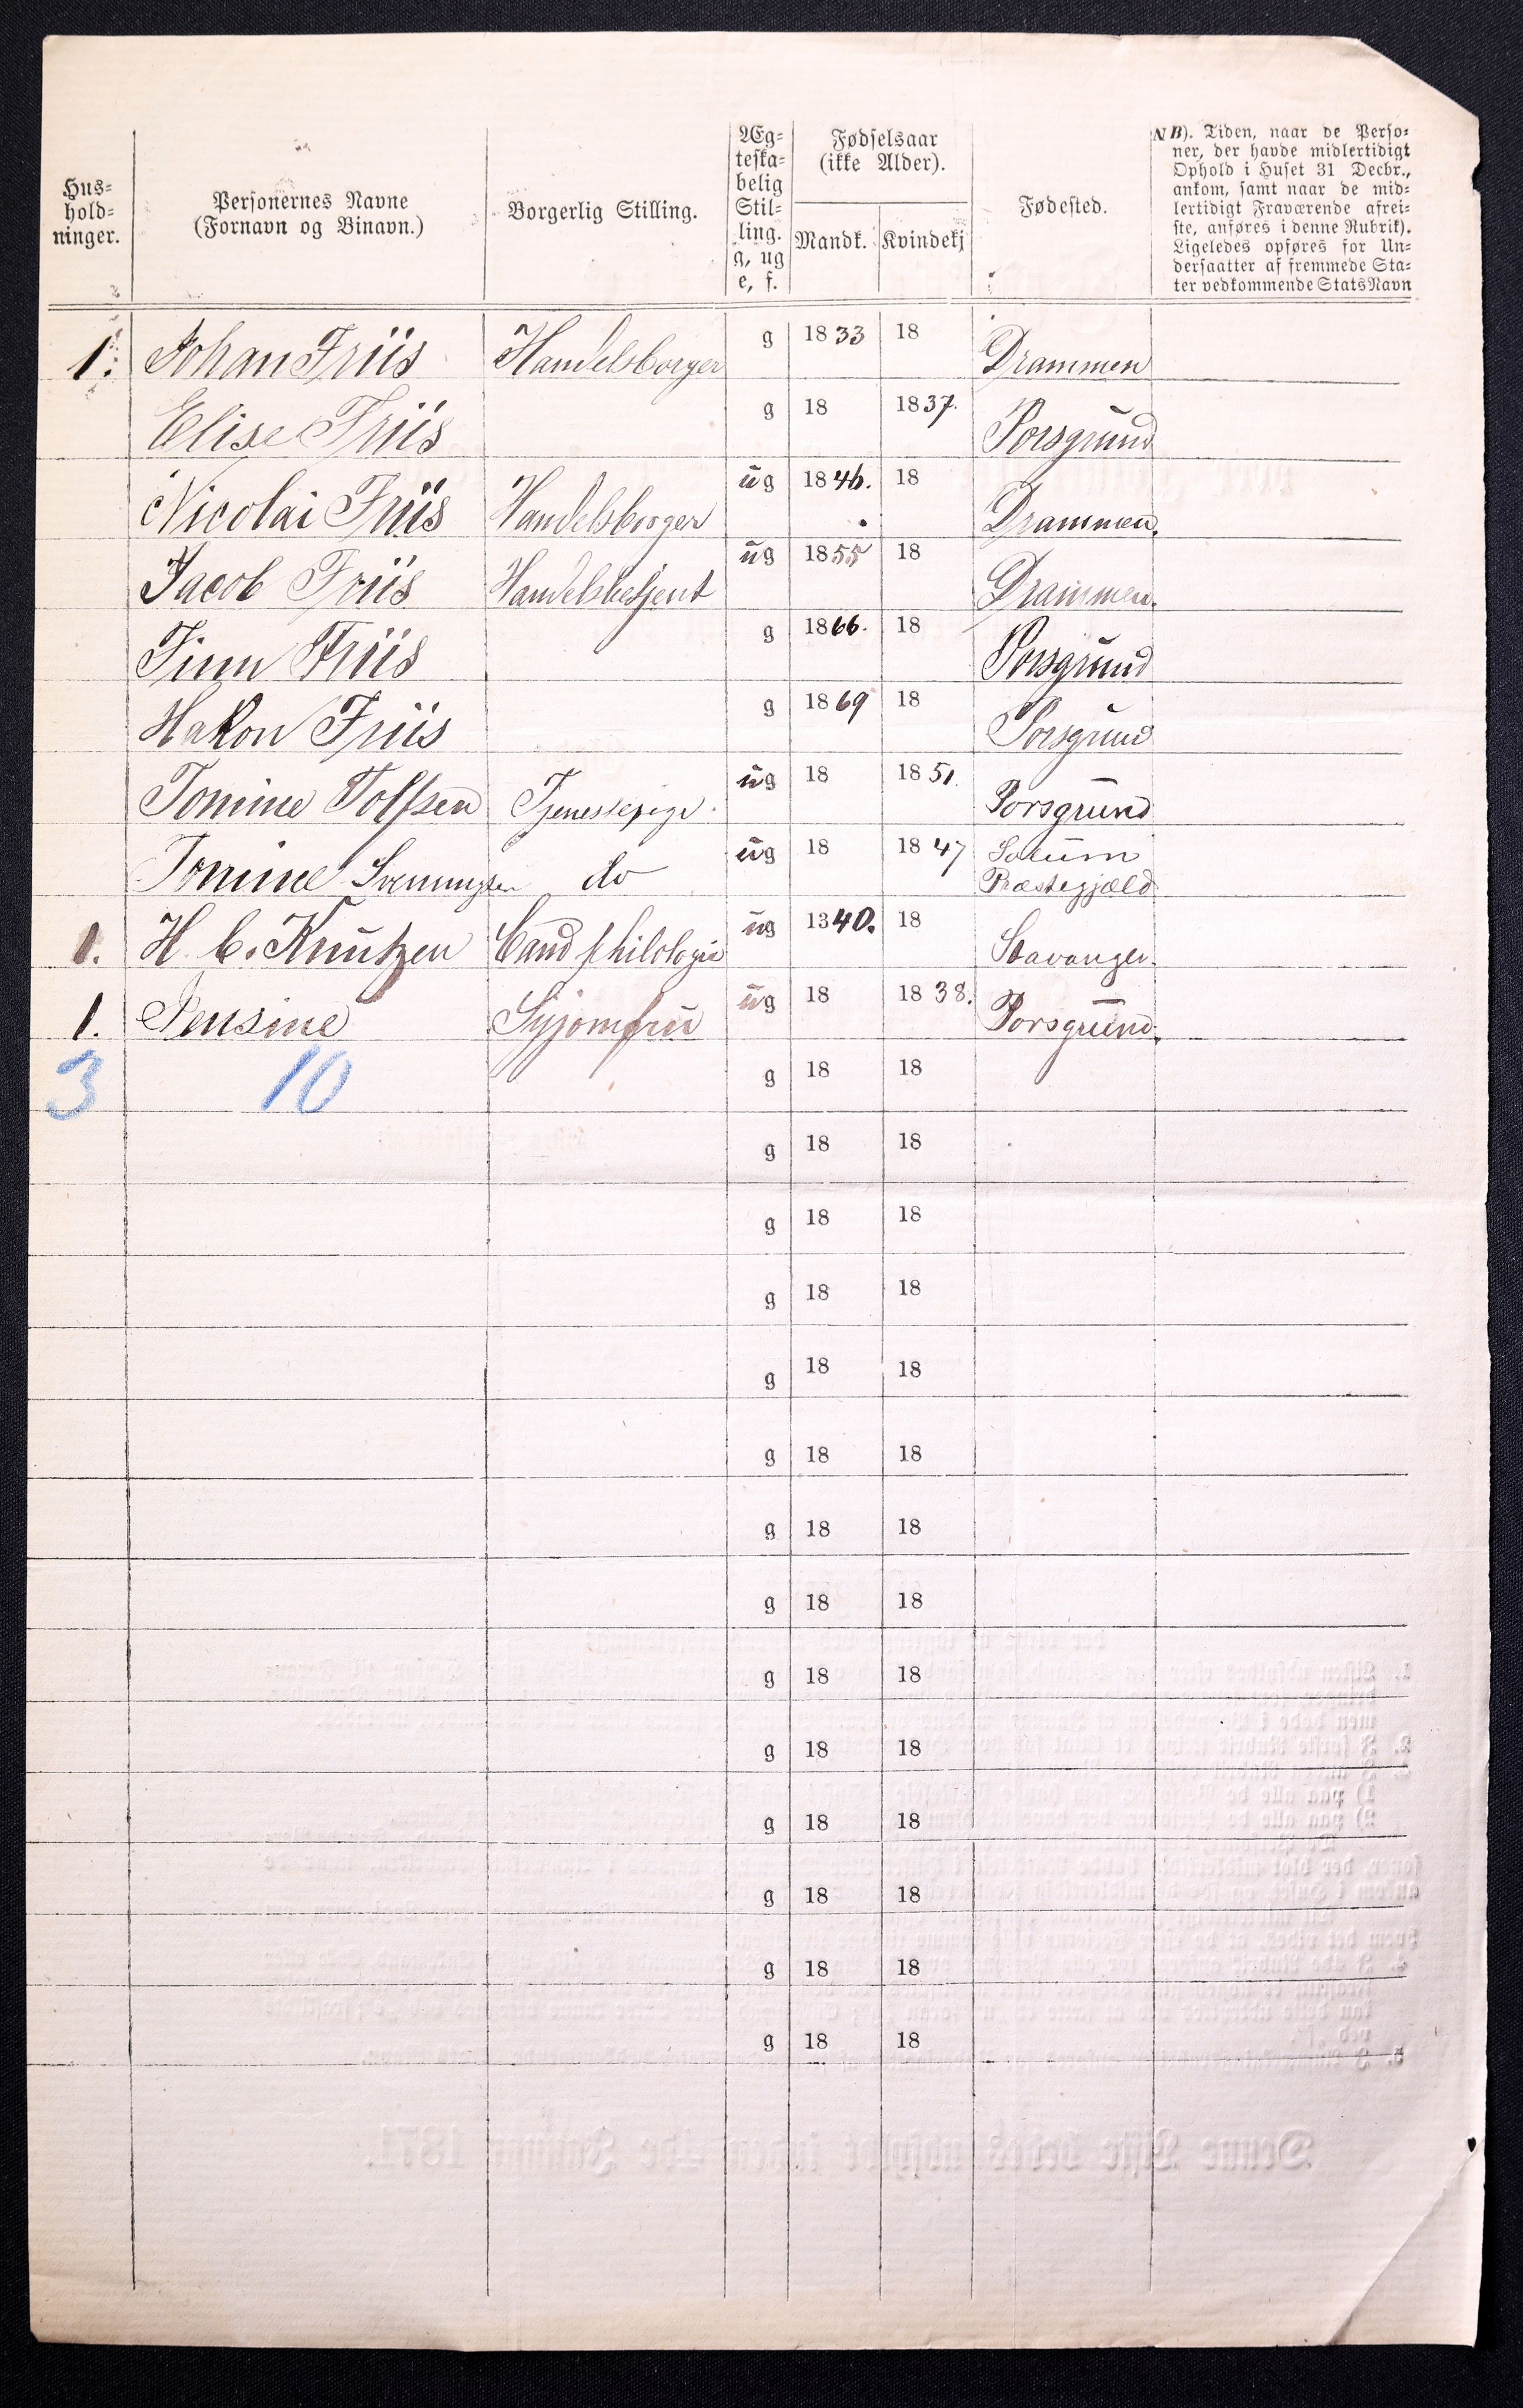 Hus-
hold-
ninger.
Personernes Navne
(Fornavn og Binavn.)
Borgerlig Stilling.
Æg-
teska-
belig
Stil-
ling.
g, ug
e, f.
Fødselsaar
(ikke Alder).
Mandk. Kvindekj
Fødested.
NB). Tiden, naar de Perso-
ner, der havde midlertidigt
Ophold i Huset 31 Decbr.,
ankom, samt naar de mid-
lertidigt Fraværende afrei-
ste, anføres i denne Rubrik).
Ligeledes opføres for Un-
dersaatter af fremmede Sta-
ter vedkommende Stats Navn
1. Johan Friis Handelsborger g 1833 18 Drammen
Elise Friis g 18 1837. Porsgrund
Nicolai Friis Handelsborger ug 1846. 18 Drammen.
Jacob Friis Handelsbetjent ug 1855 18 Drammen.
Finn Friis g 1866. 18 Porsgrund
Hakon Friis g 1869 18 Porsgrund
Tomine Tolfsen Tjenestepige. ug 18 1851. Porsgrund
Tomine Svenningsen do ug 18 1847 Solum
Præstegjæld
1. H. C. Knutzen Cand philologie ug 1340. 18 Stavanger.
1. Pensine Syjomfru ug 18 1838. Porsgrund.
3 10 g 18 18
g 18 18
g 18 18
g 18 18
g 18 18
g 18 18
g 18 18
g 18 18
g 18 18
g 18 18
g 18 18
g 18 18
g 18 18
g 18 18